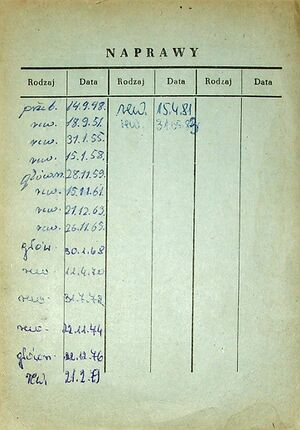 NAPRAWY
Rodzaj Data Rodzaj Data Rodzaj Data
przeb. 14.9.48. rew. 15.4.81
rew. 18.9.51. rew.
rew. 31.1.55.
rew. 15.1.58.
główn. 28.11.59.
rew. 15.11.61.
rew. 21.12.63.
rew. 26.11.65.
głów. 30.1.68
rew. 12.4.70
rew. 31.7.72
rew. 12.11.74
główn. 22.12.76
rew. 21.2.79